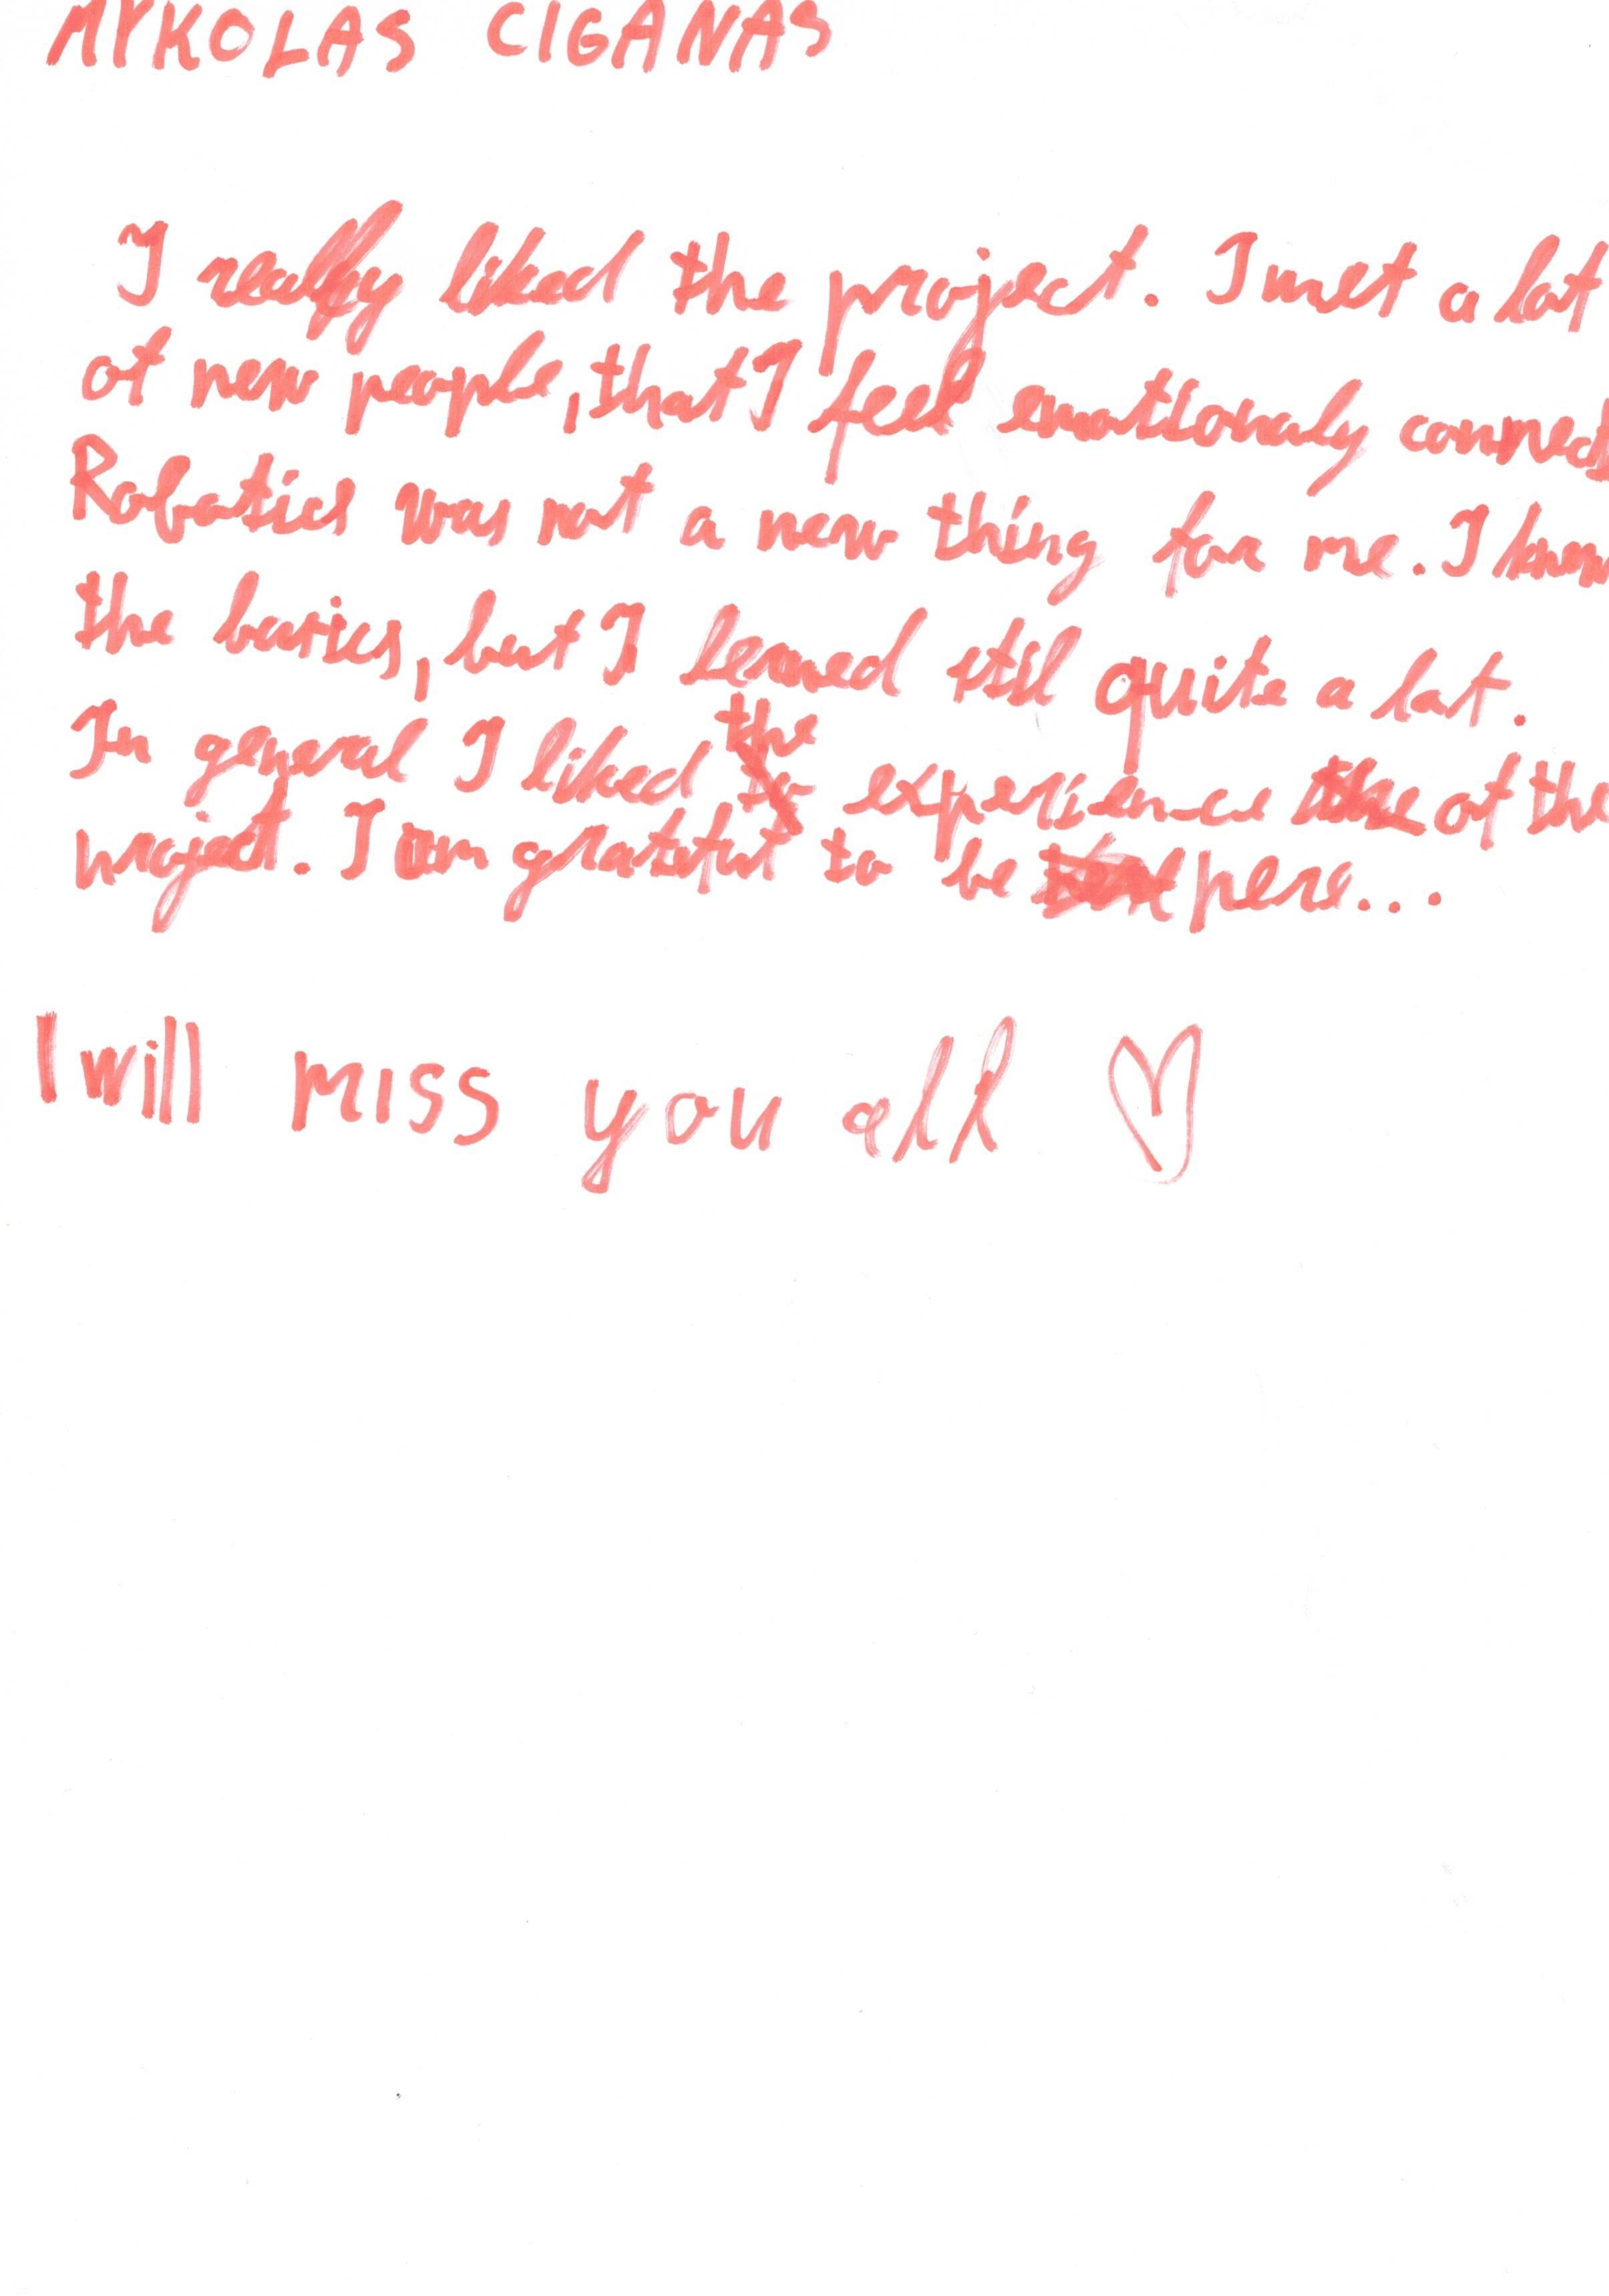 MYKOLAS CIGANAS
I really liked the project. I met a lot
of new people, that I feel emotionaly connec
Robotics was not a new thing for me. I know
the basics, but I learned still quite a lot.
In general I liked the experience of the
project. I am grateful to be here...
I will miss you all ♡